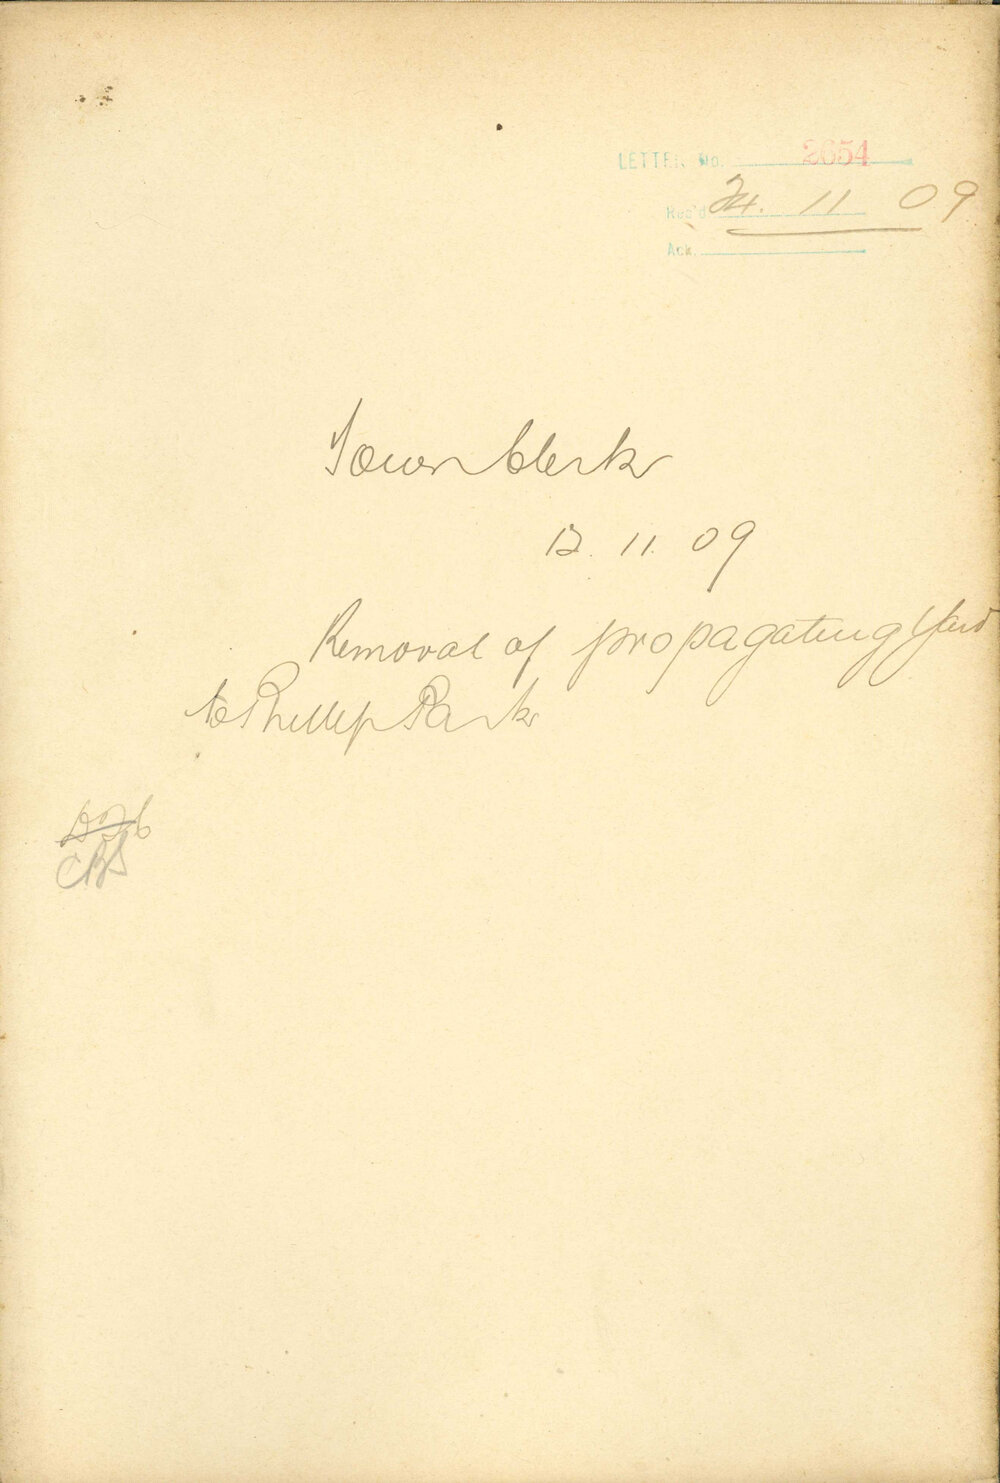 LETTER No. 2654
Rec'd 24. 11 09
Ack.
Town Clerk
12. 11. 09
Removal of propagating Yard
to Phillip Park